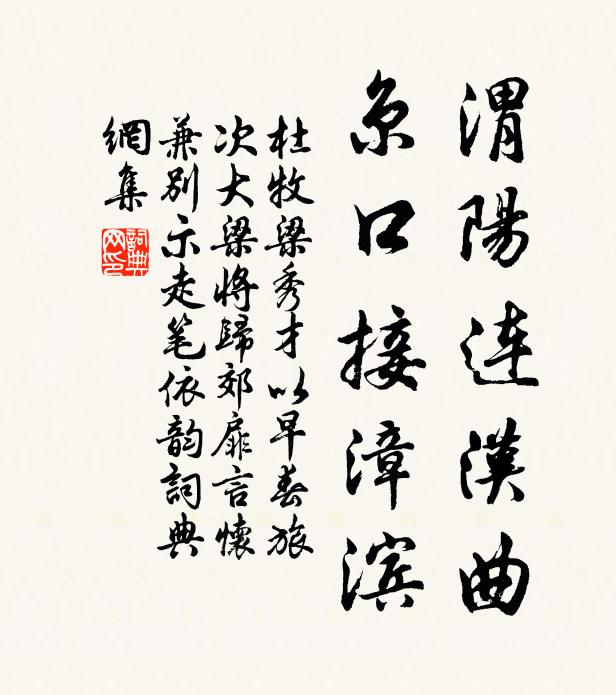 渭陽連漢曲
京口接漳滨
杜牧梁秀才以早春旅
次大梁將歸郊扉言懷
兼別示走笔依韵詞典
網集
詞典
网印